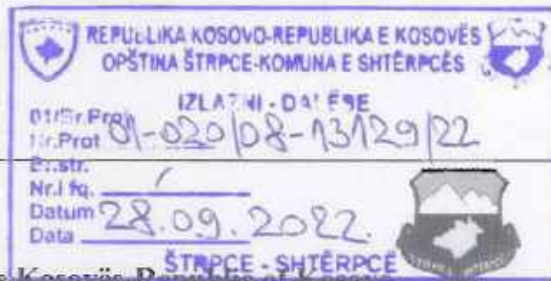 REPUBLIKA KOSOVO-REPUBLIKA E KOSOVËS
OPŠTINA ŠTRPCE-KOMUNA E SHTËRPCËS
IZLAZNI - DALËSE
01/Br.Prot
Nr.Prot 01-020/08-13129/22
Br.str.
Nr.i fq. /
Datum 28.09.2022.
Data
ŠTRPCE - SHTËRPCË
Kosovës-Republic of Kosovo